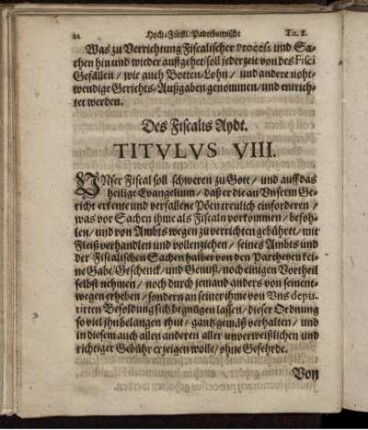 22 Hoch-Fürstl. Paderbornische Tit. 8.
Was zu Verrichtung Fiscalischer Process und Sa-
chen hin und wieder auffgehet/soll jederzeit von des Fisci
Gefällen/ wie auch Botten-Lohn/ und andere noht-
wendige Gerichts-Außgaben genommen/und entrich-
tet werden.
Des Fiscalis Aydt.
TITVLVS VIII.
UNser Fiscal soll schweren zu Gott/ und auff das
heilige Evangelium/ daß er die an Vnserm Ge-
richt erkente und verfallene Pöen treulich einforderen/
was vor Sachen ihme als Fiscaln vorkommen/ befoh-
len/ und von Ambts wegen zu verrichten gebührt/ mit
Fleiß verhandlen und vollenziehen/ seines Ambts und
der Fiscalischen Sachen halber von den Partheyen kei-
ne Gabe/Geschenck/ und Genuß/noch einigen Vortheil
selbst nehmen/ noch durch jemand anders von seinent-
wegen erheben/ sondern an seiner ihme von Uns depu-
tirten Besoldung sich begnügen lassen/ dieser Ordnung
so viel ihn belangen thut/ gantz gemäß verhalten/ und
in diesem auch allen anderen aller unverweißlichen und
richtiger Gebühr erzeigen wolle/ ohne Gefehrde.
Von